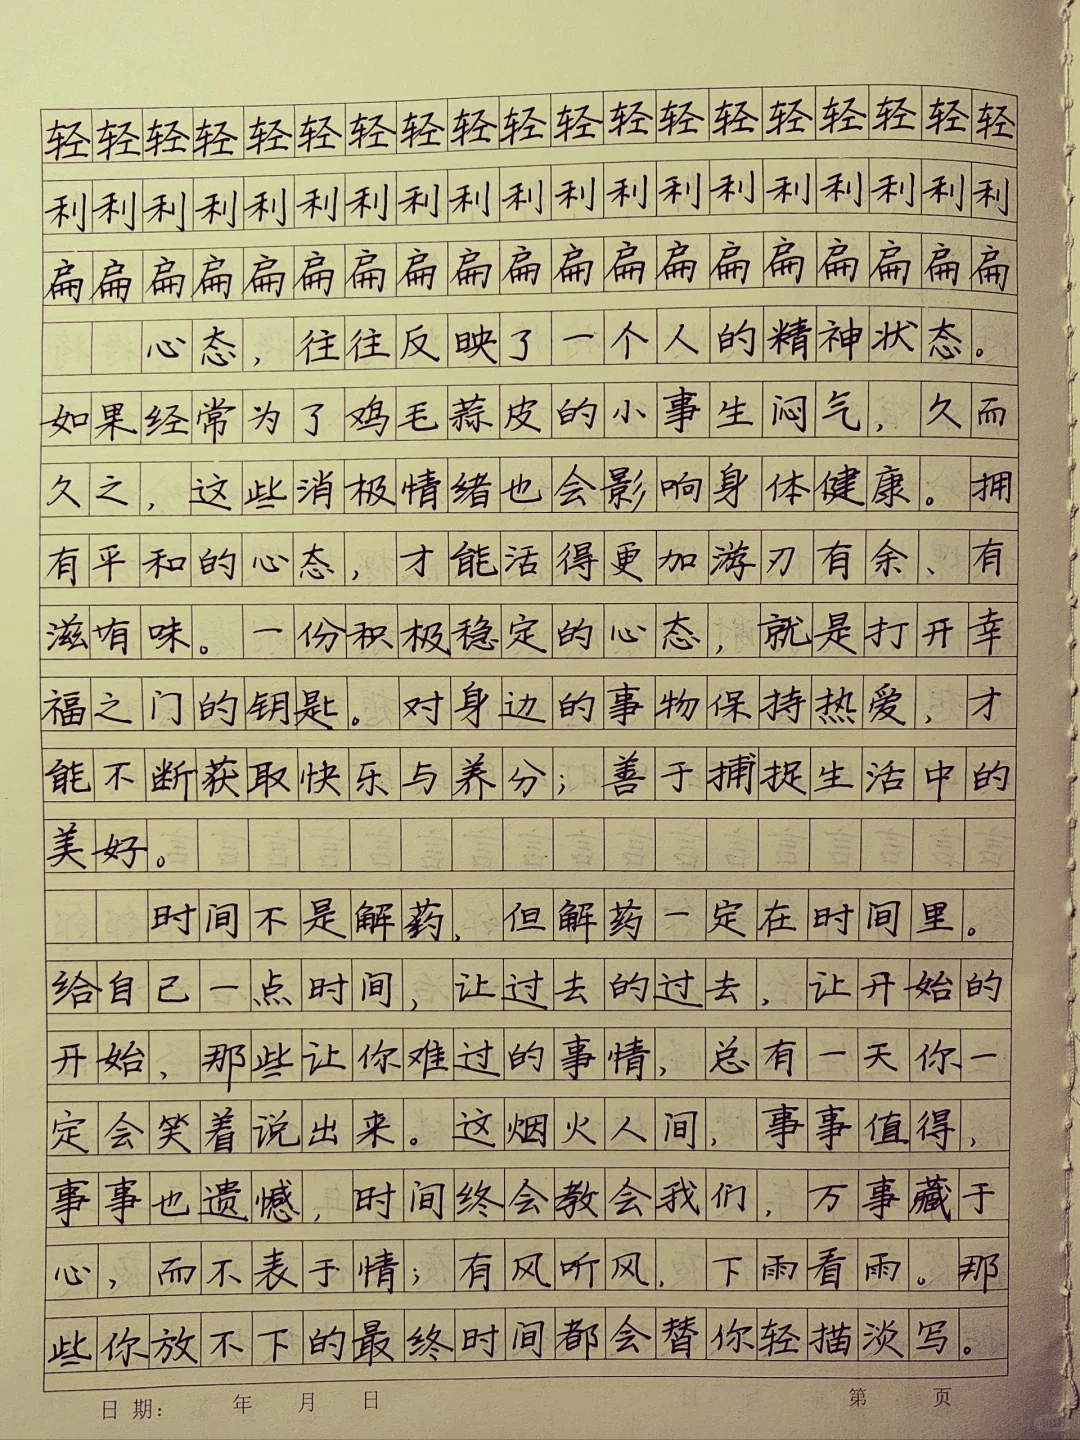 轻轻轻轻轻轻轻轻轻轻轻轻轻轻轻轻轻轻轻
利利利利利利利利利利利利利利利利利利利
扁扁扁扁扁扁扁扁扁扁扁扁扁扁扁扁扁扁扁
心态，往往反映了一个人的精神状态。
如果经常为了鸡毛蒜皮的小事生闷气，久而
久之，这些消极情绪也会影响身体健康。拥
有平和的心态，才能活得更加游刃有余、有
滋有味。一份积极稳定的心态，就是打开幸
福之门的钥匙。对身边的事物保持热爱，才
能不断获取快乐与养分；善于捕捉生活中的
美好。
时间不是解药，但解药一定在时间里。
给自己一点时间，让过去的过去，让开始的
开始，那些让你难过的事情，总有一天你一
定会笑着说出来。这烟火人间，事事值得，
事事也遗憾，时间终会教会我们，万事藏于
心，而不表于情；有风听风，下雨看雨。那
些你放不下的最终时间都会替你轻描淡写。
日期： 年 月 日 第 页